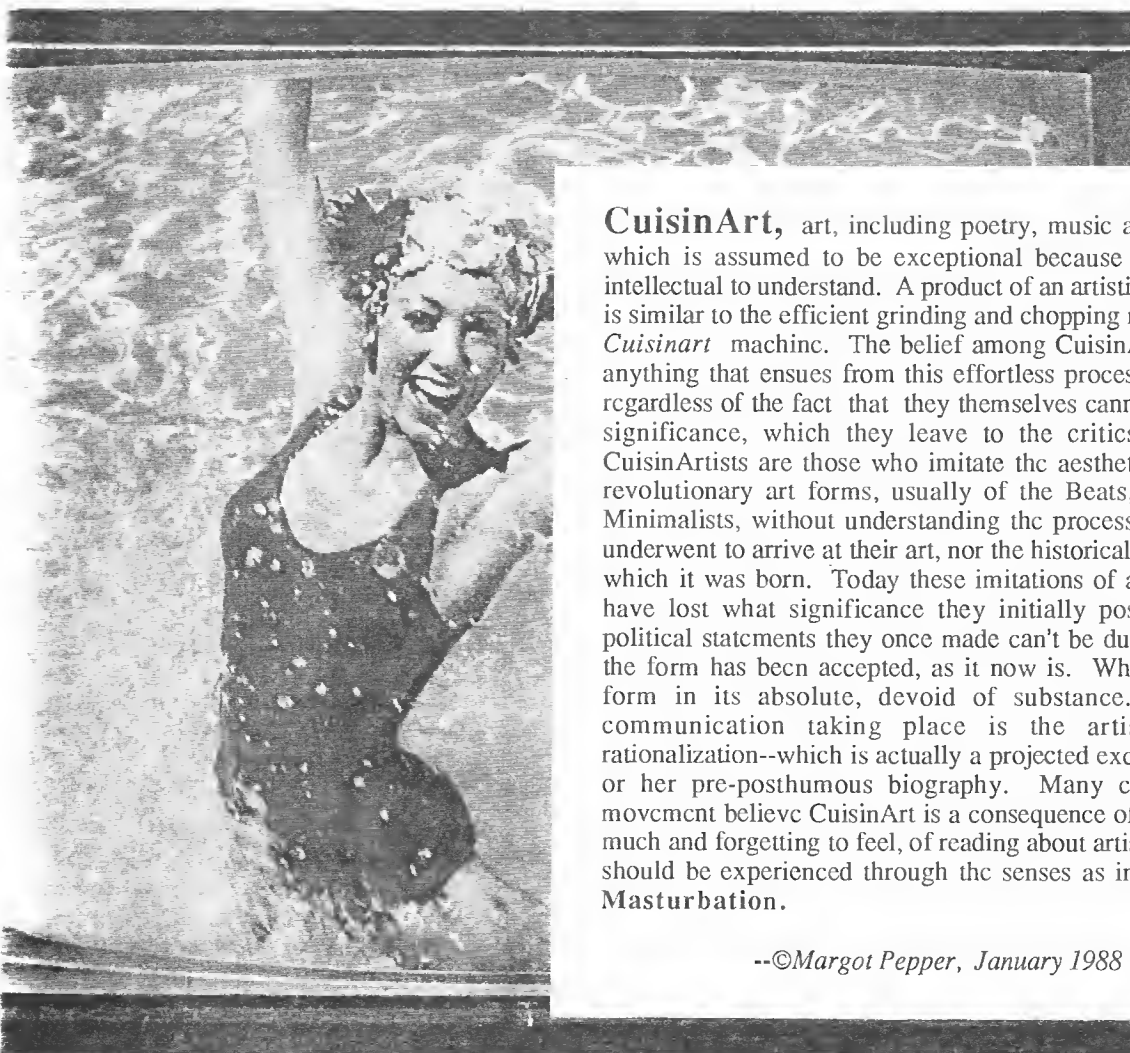 CuisinArt, art, including poetry, music a
which is assumed to be exceptional because
intellectual to understand. A product of an artisti
is similar to the efficient grinding and chopping
Cuisinart machine. The belief among Cuisin
anything that ensues from this effortless proces
regardless of the fact that they themselves cann
significance, which they leave to the critics
CuisinArtists are those who imitate the aesthet
revolutionary art forms, usually of the Beats
Minimalists, without understanding the process
underwent to arrive at their art, nor the historical
which it was born. Today these imitations of a
have lost what significance they initially pos
political statements they once made can't be du
the form has been accepted, as it now is. Wh
form in its absolute, devoid of substance.
communication taking place is the artis
rationalization--which is actually a projected exc
or her pre-posthumous biography. Many c
movement believe CuisinArt is a consequence of
much and forgetting to feel, of reading about arti
should be experienced through the senses as in
Masturbation.
--©Margot Pepper, January 1988